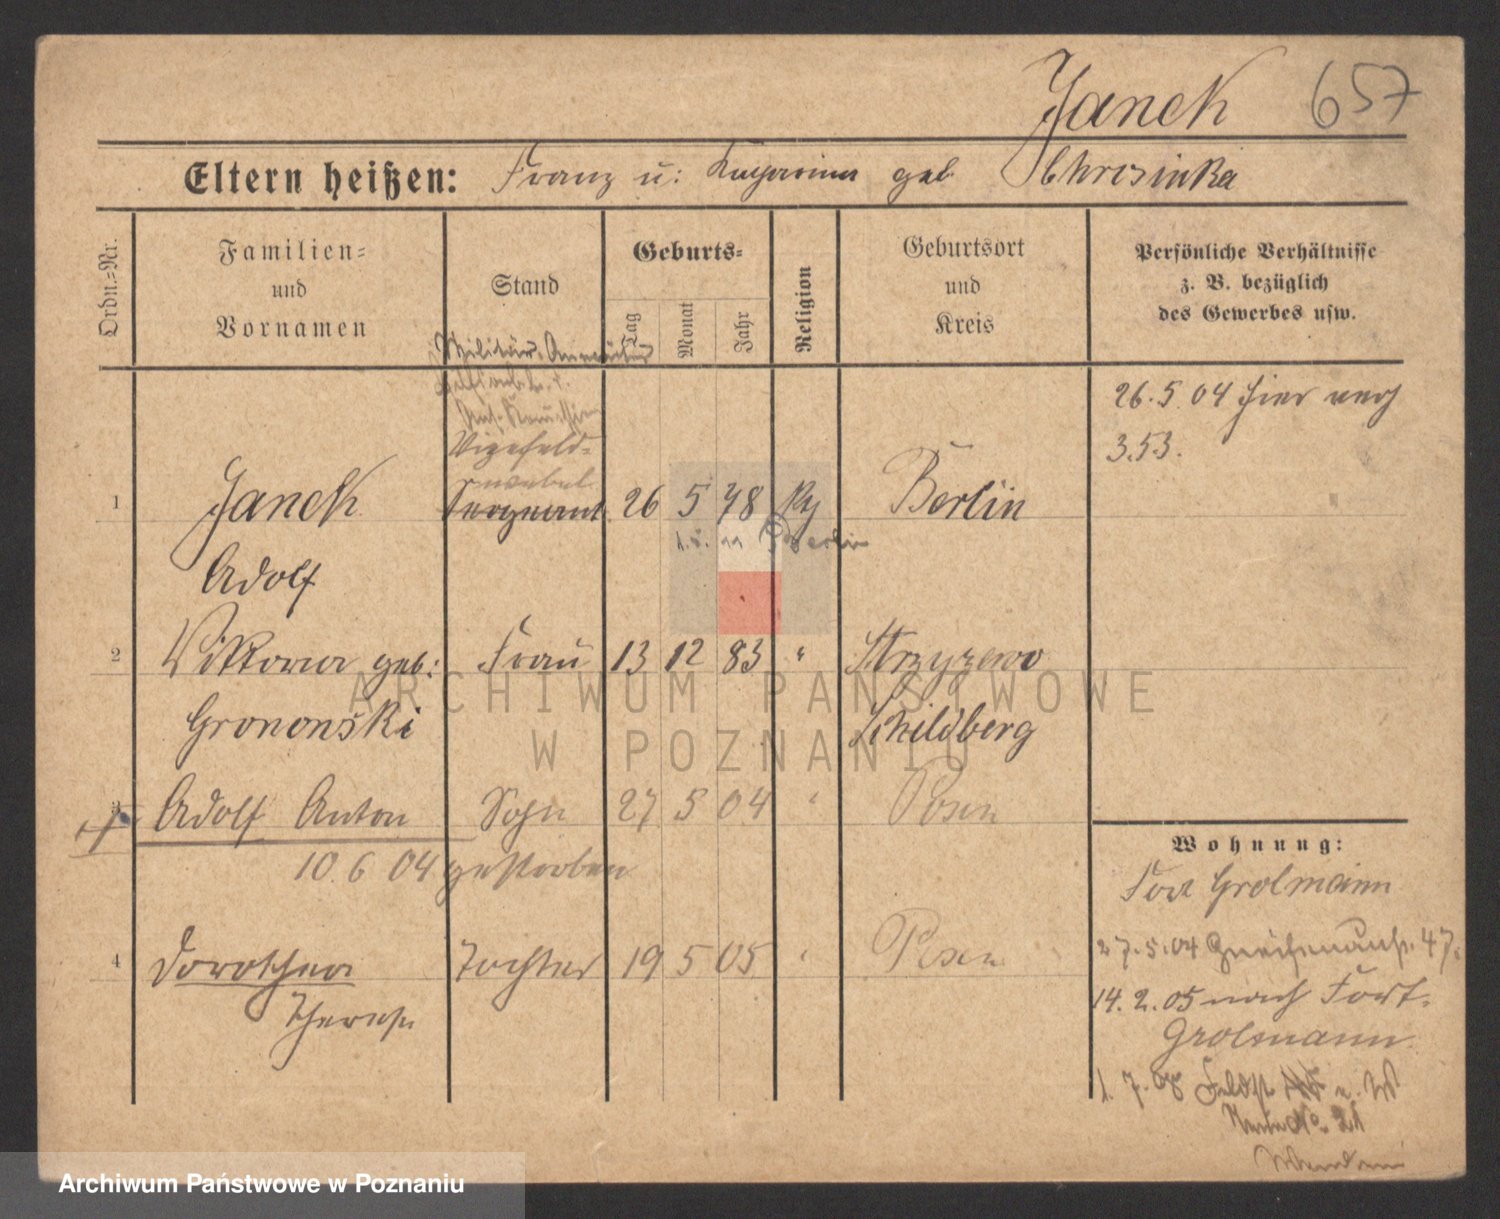 Janek 657
Eltern heißen: Franz u: geb Chrosinka
Ordn.-Nr.
Familien-
und
Vornamen
Stand
Geburts-
Tag
Monat
Jahr
Religion
Geburtsort
und
Kreis
Persönliche Verhältnisse
z. B. bezüglich
des Gewerbes usw.
Militär-Anwärter
Vizefeld-
webel
1 Janek Sergeant 26 5 78 Berlin
Adolf
Berlin
26. 5 04 hier
353.
2 Viktoria geb: Frau 13 12 83 " Strzyzewo
Gronowski Schildberg
3 Adolf Anton Sohn 27 5 04 " Posen
10. 6 04 gestorben
4 Dorothea Tochter 19 5 05 " Posen
Therese
Wohnung:
Fort Grolmann
27. 5. 04 47.
14. 2. 05 nach Fort
Grolmann
1. 7. 08
No. 21
ARCHIWUM PAŃSTWOWE
W POZNANIU
Archiwum Państwowe w Poznaniu